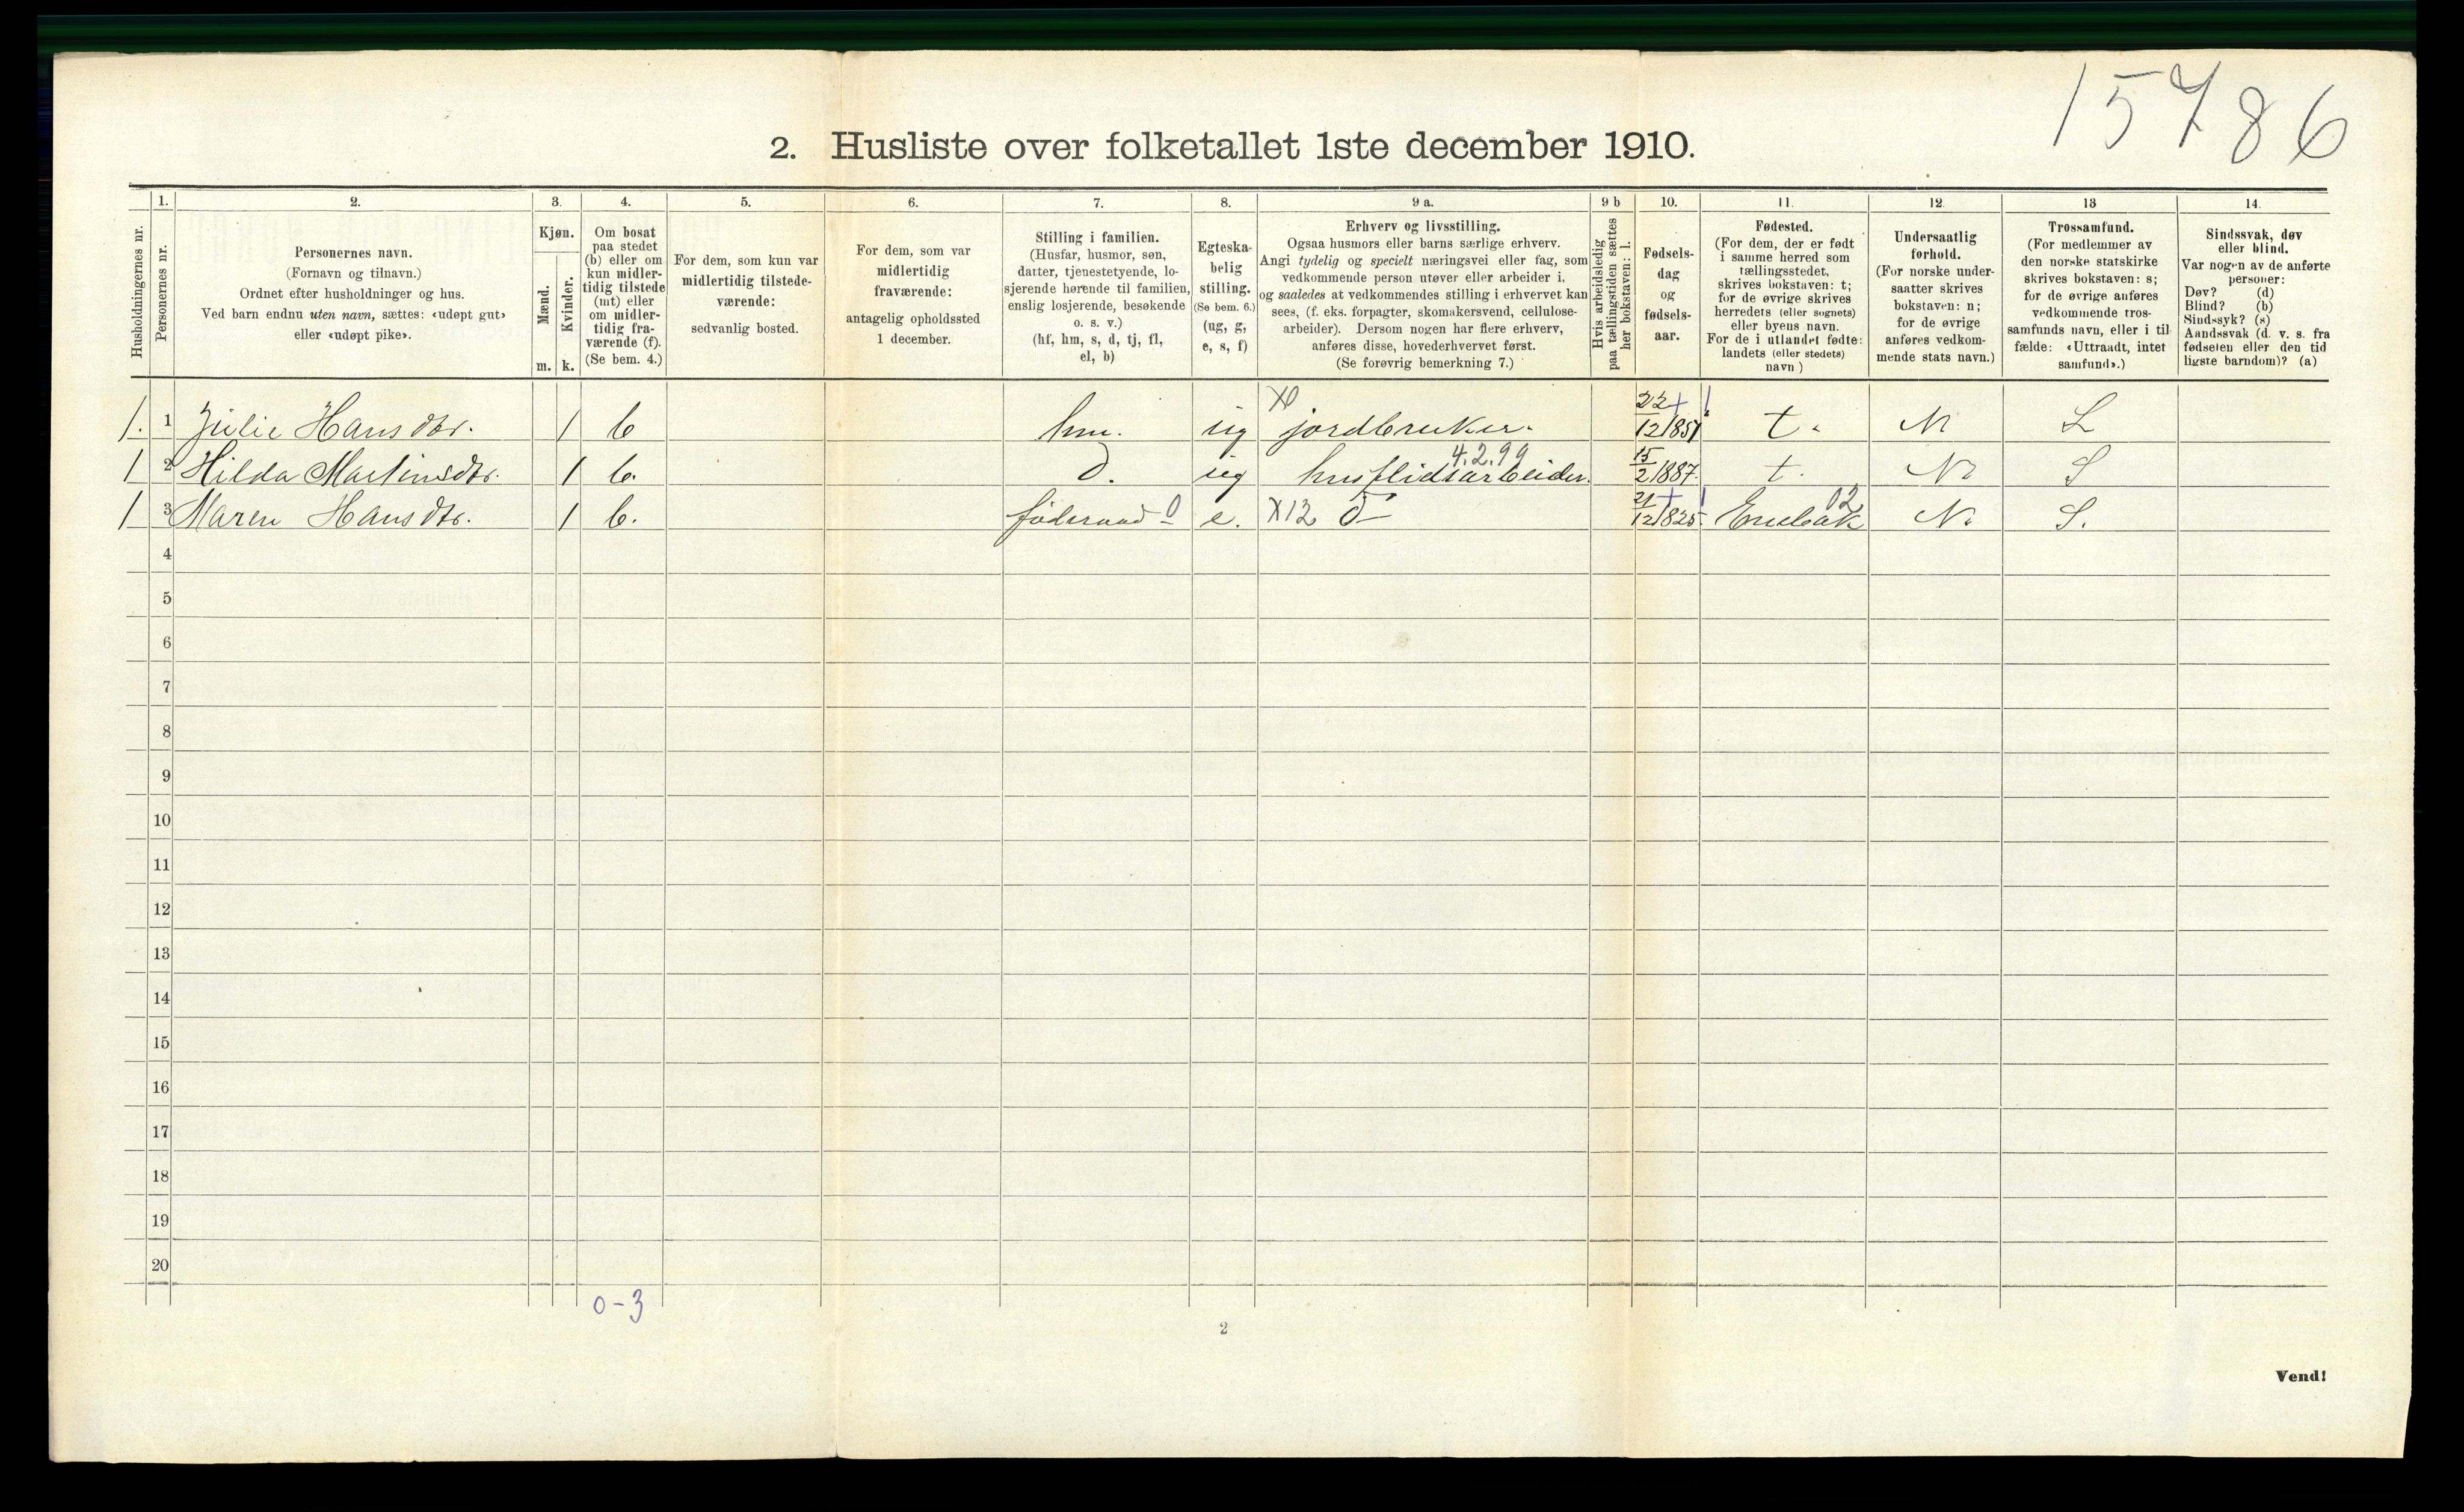 15786
2. Husliste over folketallet 1ste december 1910.
Husholdningernes nr.
1.
Personernes nr.
2.
Personernes navn.
(Fornavn og tilnavn.)
Ordnet efter husholdninger og hus.
Ved barn endnu uten navn, sættes: «udøpt gut»
eller «udøpt pike».
3.
Kjøn.
Mænd.
Kvinder.
m. k.
4.
Om bosat
paa stedet
(b) eller om
kun midler-
tidig tilstede
(mt) eller
om midler-
tidig fra-
værende (f).
(Se bem. 4.)
5.
For dem, som kun var
midlertidig tilstede-
værende:
sedvanlig bosted.
6.
For dem, som var
midlertidig
fraværende:
antagelig opholdssted
1 december.
7.
Stilling i familien.
(Husfar, husmor, søn,
datter, tjenestetyende, lo-
sjerende hørende til familien,
enslig losjerende, besøkende
o. s. v.)
(hf, hm, s, d, tj, fl,
el, b)
8.
Egteska-
belig
stilling.
(Se bem. 6.)
(ug, g,
e, s, f)
9 a.
Erhverv og livsstilling.
Ogsaa husmors eller barns særlige erhverv.
Angi tydelig og specielt næringsvei eller fag, som
vedkommende person utøver eller arbeider i,
og saaledes at vedkommendes stilling i erhvervet kan
sees, (f. eks. forpagter, skomakersvend, cellulose-
arbeider). Dersom nogen har flere erhverv,
anføres disse, hovederhvervet først.
(Se forøvrig bemerkning 7.)
9 b
Hvis arbeidsledig
paa tællingstiden sættes
her bokstaven: l.
10.
Fødsels-
dag
og
fødsels-
aar.
11.
Fødested.
(For dem, der er født
i samme herred som
tællingsstedet,
skrives bokstaven: t;
for de øvrige skrives
herredets (eller sognets)
eller byens navn.
For de i utlandet fødte:
landets (eller stedets)
navn )
12.
Undersaatlig
forhold.
(For norske under-
saatter skrives
bokstaven: n;
for de øvrige
anføres vedkom-
mende stats navn.)
13
Trossamfund.
(For medlemmer av
den norske statskirke
skrives bokstaven: s;
for de øvrige anføres
vedkommende tros-
samfunds navn, eller i til
fælde: «Uttraadt, intet
samfund».)
14.
Sindssvak, døv
eller blind.
Var nogen av de anførte
personer:
Døv? (d)
Blind? (b)
Sindssyk? (s)
Aandssvak (d. v. s. fra
fødselen eller den tid
ligste barndom)? (a)
1. 1 Julie Hansdtr. 1 b hm. ug X0 jordbruker. 22/12 1851 t. N S
1 2 Hilda Martinsdtr. 1 b. d. ug husflidsarbeider. 4.2.99 15/2 1887. t. N S
1 3 Maren Hansdtr. 1 b. føderaad 0 e. X12 21/12 1825. Enebak 02 N. S.
4
5
6
7
8
9
10
11
12
13
14
15
16
17
18
19
20
0-3
2
Vend!